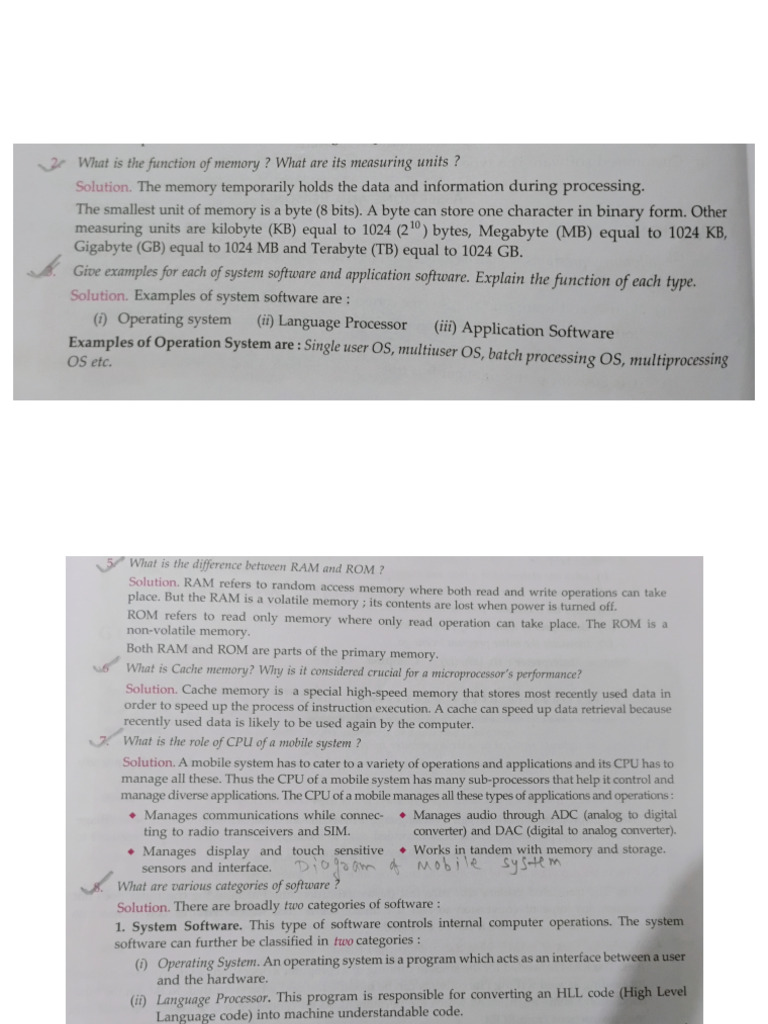 2. What is the function of memory ? What are its measuring units ?
Solution. The memory temporarily holds the data and information during processing.
The smallest unit of memory is a byte (8 bits). A byte can store one character in binary form. Other
measuring units are kilobyte (KB) equal to 1024 (2¹⁰) bytes, Megabyte (MB) equal to 1024 KB,
Gigabyte (GB) equal to 1024 MB and Terabyte (TB) equal to 1024 GB.
3. Give examples for each of system software and application software. Explain the function of each type.
Solution. Examples of system software are :
(i) Operating system (ii) Language Processor (iii) Application Software
Examples of Operation System are : Single user OS, multiuser OS, batch processing OS, multiprocessing
OS etc.
5. What is the difference between RAM and ROM ?
Solution. RAM refers to random access memory where both read and write operations can take
place. But the RAM is a volatile memory ; its contents are lost when power is turned off.
ROM refers to read only memory where only read operation can take place. The ROM is a
non-volatile memory.
Both RAM and ROM are parts of the primary memory.
6 What is Cache memory? Why is it considered crucial for a microprocessor's performance?
Solution. Cache memory is a special high-speed memory that stores most recently used data in
order to speed up the process of instruction execution. A cache can speed up data retrieval because
recently used data is likely to be used again by the computer.
7. What is the role of CPU of a mobile system ?
Solution. A mobile system has to cater to a variety of operations and applications and its CPU has to
manage all these. Thus the CPU of a mobile system has many sub-processors that help it control and
manage diverse applications. The CPU of a mobile manages all these types of applications and operations :
♦ Manages communications while connec-
ting to radio transceivers and SIM.
♦ Manages display and touch sensitive
sensors and interface.
♦ Manages audio through ADC (analog to digital
converter) and DAC (digital to analog converter).
♦ Works in tandem with memory and storage.
Diagram of Mobile system
8. What are various categories of software ?
Solution. There are broadly two categories of software :
1. System Software. This type of software controls internal computer operations. The system
software can further be classified in two categories :
(i) Operating System. An operating system is a program which acts as an interface between a user
and the hardware.
(ii) Language Processor. This program is responsible for converting an HLL code (High Level
Language code) into machine understandable code.